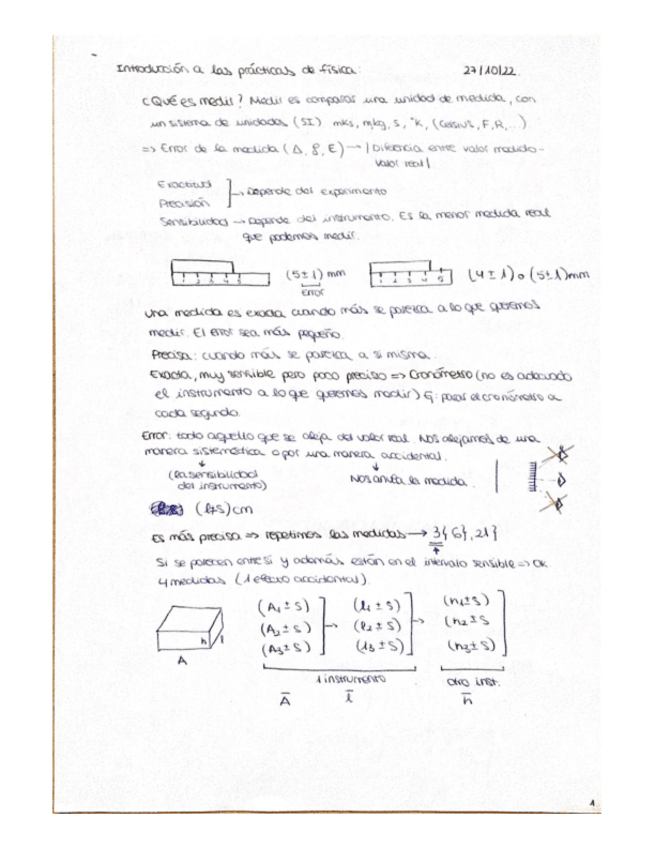 Introducción a las prácticas de física: 27/10/22.
¿Qué es medir? Medir es comparar una unidad de medida, con
un sistema de unidades (SI) mks, m,kg, s, °K, (Celsius, F, R, ...)
=> Error de la medida (Δ, δ, E) → | Diferencia entre valor medido -
valor real |
Exactitud
Precisión
→ Depende del experimento
Sensibilidad → Depende del instrumento. Es la menor medida real
que podemos medir.
1 2 3 4 5
(5 ± 1) mm
error
1 2 3 4 5
(4 ± 1) o (5 ± 1) mm
Una medida es exacta cuando más se parezca a lo que queremos
medir. El error sea más pequeño.
Precisa: cuando más se parezca a si misma.
Exacta, muy sensible pero poco preciso => Cronómetro (no es adecuado
el instrumento a lo que queremos medir) Ej: parar el cronómetro a
cada segundo.
Error: todo aquello que se aleja del valor real. Nos alejamos de una
manera sistemática o por una manera accidental.
(la sensibilidad
del instrumento)
Nos anula la medida.
(l ± s) cm
Es más preciso => repetimos las medidas → 3{6}, 21}
Si se parecen entre sí y además están en el intervalo sensible => OK
4 medidas (1 efecto accidental).
h l
A
(A₁ ± S) (l₁ ± S) (h₁ ± S)
(A₂ ± S) → (l₂ ± S) → (h₂ ± S
(A₃ ± S) (l₃ ± S) (h₃ ± S)
1 instrumento otro inst.
Ā l̄ h̄
1